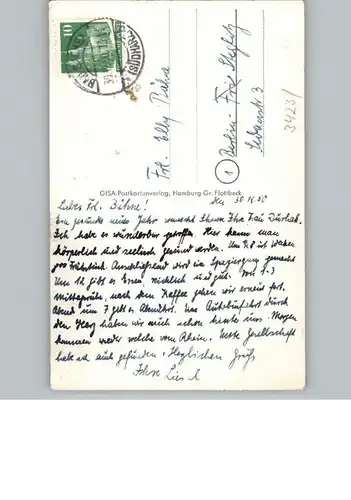 10
(SÜDHARZ)
Frl. Elly Bühse
(1) Berlin-
3423/
GISA-Postkartenverlag, Hamburg Gr. Flottbeck
Liebes Frl. Bühse! 30.12.50
Ein gesundes neues Jahr wünscht Ihnen Ihre Frau
Ich habe es wunderbar getroffen. Hier kann man
körperlich und seelisch gesund werden. Um
Frühstück. Anschließend wird ein Spaziergang gemacht
Um 12 gibt es Essen, reichlich und gut. Von 1-3
Mittagsruhe, nach dem Kaffee gehen wir erneut fort.
Abend um 7 gibt es Abendbrot. Eine Autobusfahrt durch
den Harz haben wir auch schon hinter uns. Morgen
kommen wieder welche vom Rhein. Nette Gesellschaft
habe ich auch gefunden. Herzlichen Gruß
Ihre